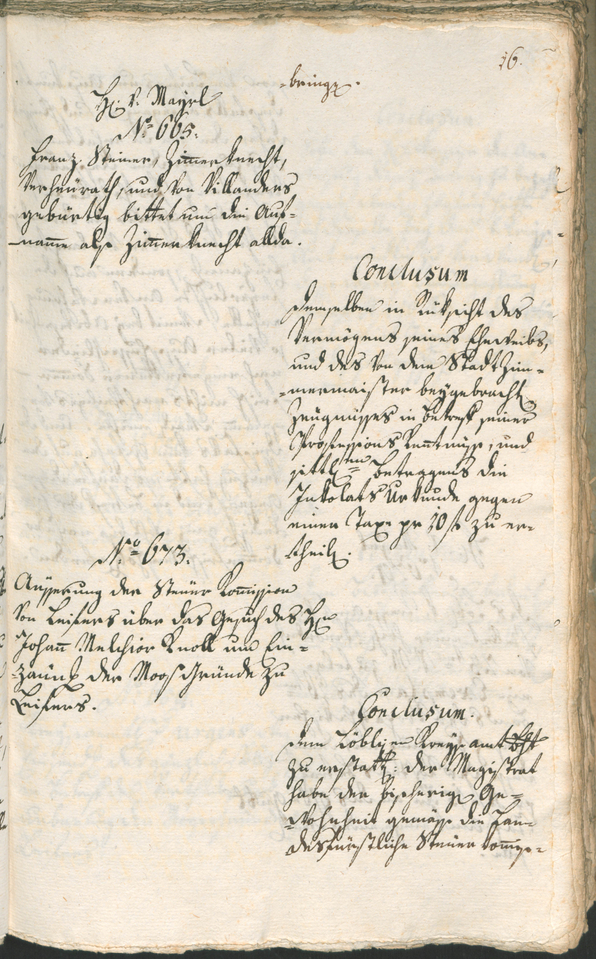 16.
bringen.
H: v. Mayrl
No 665.
Franz Steiner, Zimerknecht,
verheurath, und von Villanders
gebürtig bittet um die Auf-
namme als Zimerknecht allda.
Conclusum
Demselben in Rüksicht des
Vermögens seines Eheweibs,
und des von dem Stadt Zim-
mermaister beygebrachten
Zeügnisses in betref seiner
Professions Kenntnisse, und
sittlen Betragens die
Inkolats Urkunde gegen
einer Taxe pr 10 f zu er-
theilen.
No 673.
Aüsserung der Steüer Kommission
von Leifers über das Gesuch des Hn
Johann Melchior Knoll um Ein-
zäunung der Moos Gründe zu
Leifers.
Conclusum.
Dem Löblichen Kreysamt
zu erstatten: der Magistrat
habe der bisherigen Ge-
wohnheit gemäss die Lan-
desfürstliche Steüer Commis-